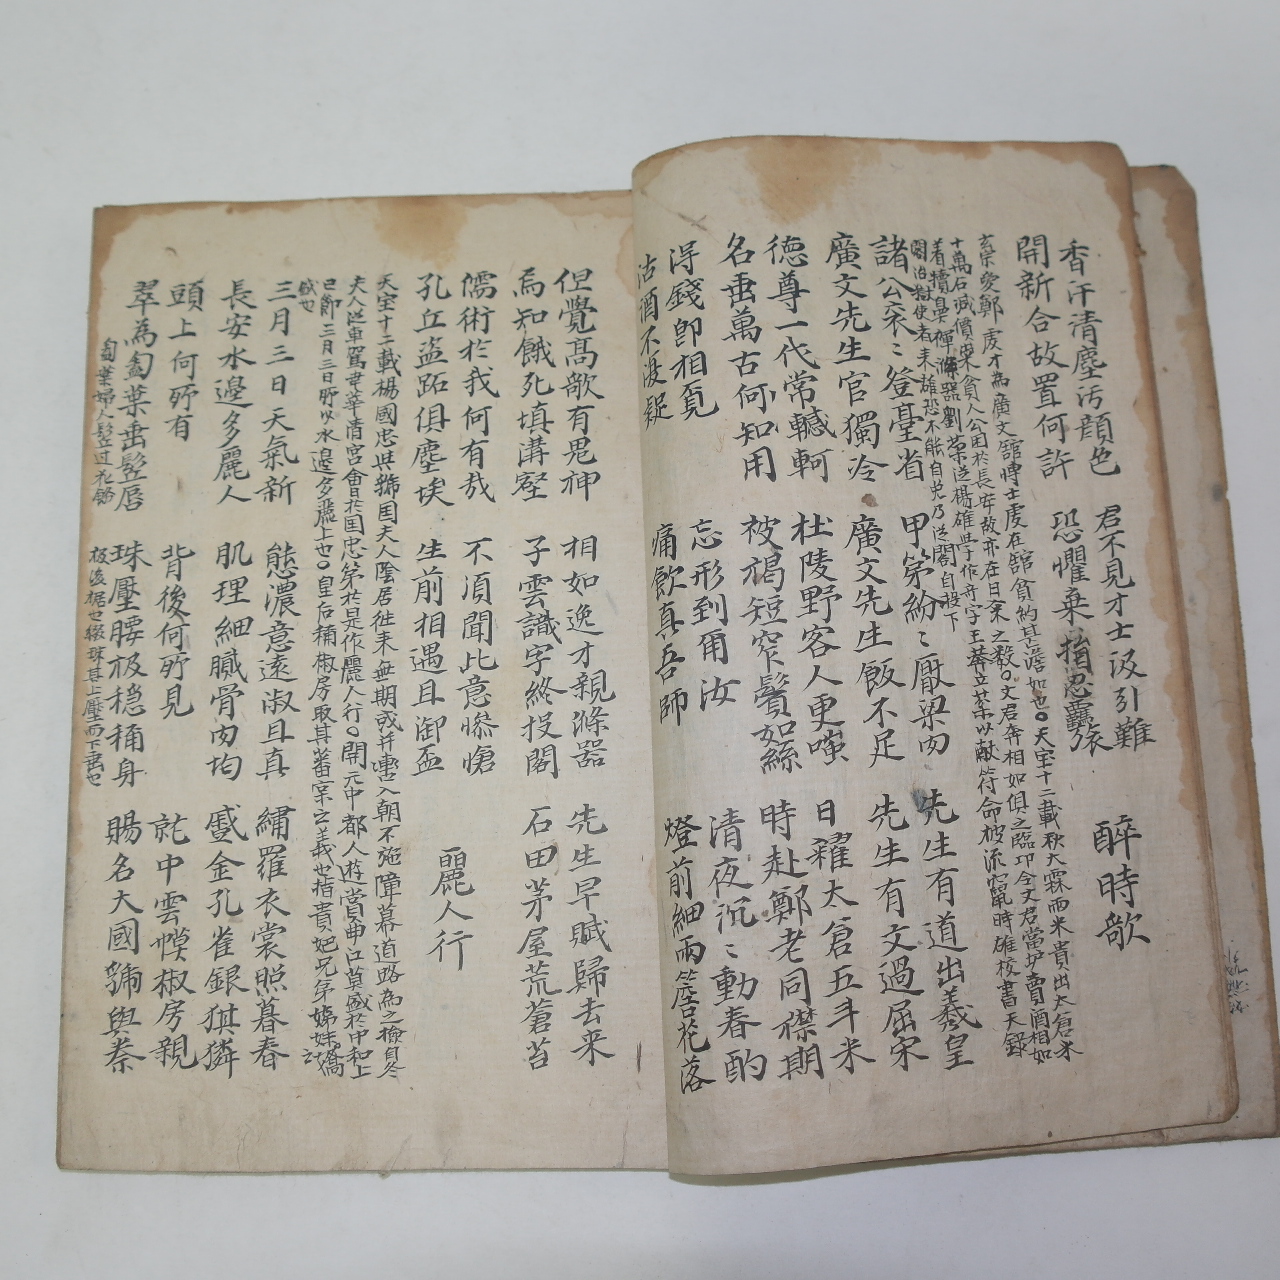 香汗清塵汚顔色 君不見才士汲引難
開新合故置何許 恐懼棄捐忍羈 醉時歌
玄宗愛鄭虔才為廣文館博士虔在館貧約甚澹如也○天宝十二載秋大霖雨米貴出太倉米
十萬石减價糶貧人公困於長安故亦在日籴之数○文君奔相如俱之臨卭令文君當垆賣酒相如
着犢鼻褌滌器劉棻従楊雄學作奇字王莾立棻以献符命被流竄時雄校書天錄
閣治獄使者来雄恐不能自免乃従閣自投下
諸公衮〻登臺省 甲第紛〻厭梁肉 先生有道出羲皇
廣文先生官獨冷 廣文先生飯不足 先生有文過屈宋
德尊一代常轗軻 杜陵野客人更嗤 日糴太倉五斗米
名垂萬古何知用 被褐短窄鬢如絲 時赴鄭老同襟期
淂錢卽相覓 忘形到爾汝 清夜沉〻動春酌
沽酒不復疑 痛飮真吾師 燈前細雨簷花落
但覺髙歌有鬼神 相如逸才親滌器 先生早賦歸去来
焉知餓死填溝壑 子雲識字終投閣 石田茅屋荒蒼苔
儒術於我何有哉 不須聞此意慘愴
孔丘盗跖俱塵埃 生前相遇且御盃 麗人行
天宝十二載楊国忠與虢国夫人隂居徃来無期或并轡入朝不施障幕道路為之掩目冬
夫人従車駕幸華清宮會於囯忠第於是作麗人行○開元中都人遊賞曲江莫盛於中和上
巳節三月三日所以水邉多麗上也○皇后稱椒房取其蕃宲之義也指貴妃兄弟姊妹
賦也
三月三日天氣新 態濃意遠淑且真 繡羅衣裳照暮春
長安水邉多麗人 肌理細膩骨肉均 蹙金孔雀銀猉獜
頭上何所有 背後何所見 就中雲幙椒房親
翠為㔩葉垂鬓唇 珠壓腰衱穏稱身 賜名大國虢與秦
㔩葉婦人髻上花餙 衱後裾也綴珠其上壓而下垂也